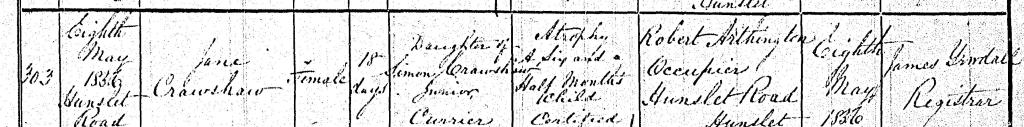 Hunslet
303
Eighth
May
1856
Hunslet
Road
Jane
Crawshaw
Female
18
days
Daughter of
Simon Crawshaw
Junior
Currier
Atrophy
A Six and a
Half Months
Child
Certified
Robert Arthington
Occupier
Hunslet Road
Hunslet
Eighth
May
1856
James Yewdall
Registrar